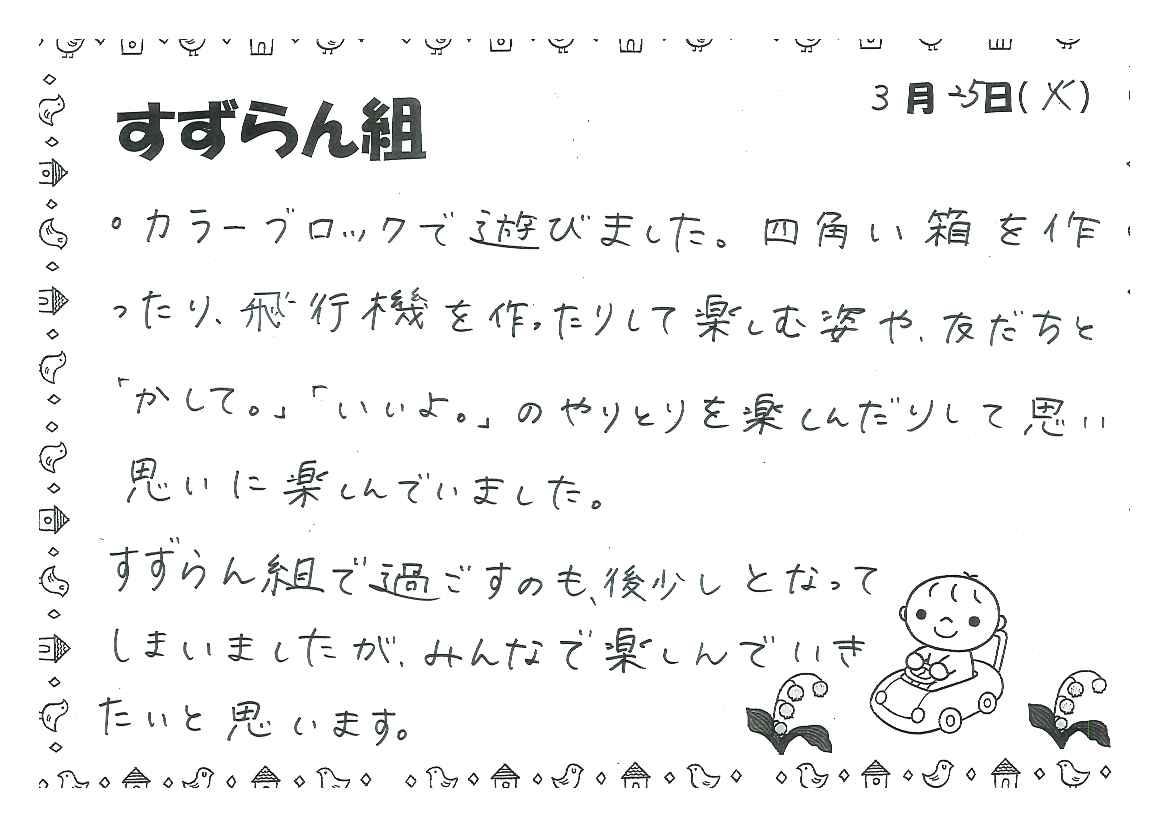 すずらん組
3月25日(火)
。カラーブロックで遊びました。四角い箱を作
ったり、飛行機を作ったりして楽しむ姿や、友だちと
「かして。」「いいよ。」のやりとりを楽しんだりして思い
思いに楽しんでいました。
すずらん組で過ごすのも、後少しとなって
しまいましたが、みんなで楽しんでいき
たいと思います。